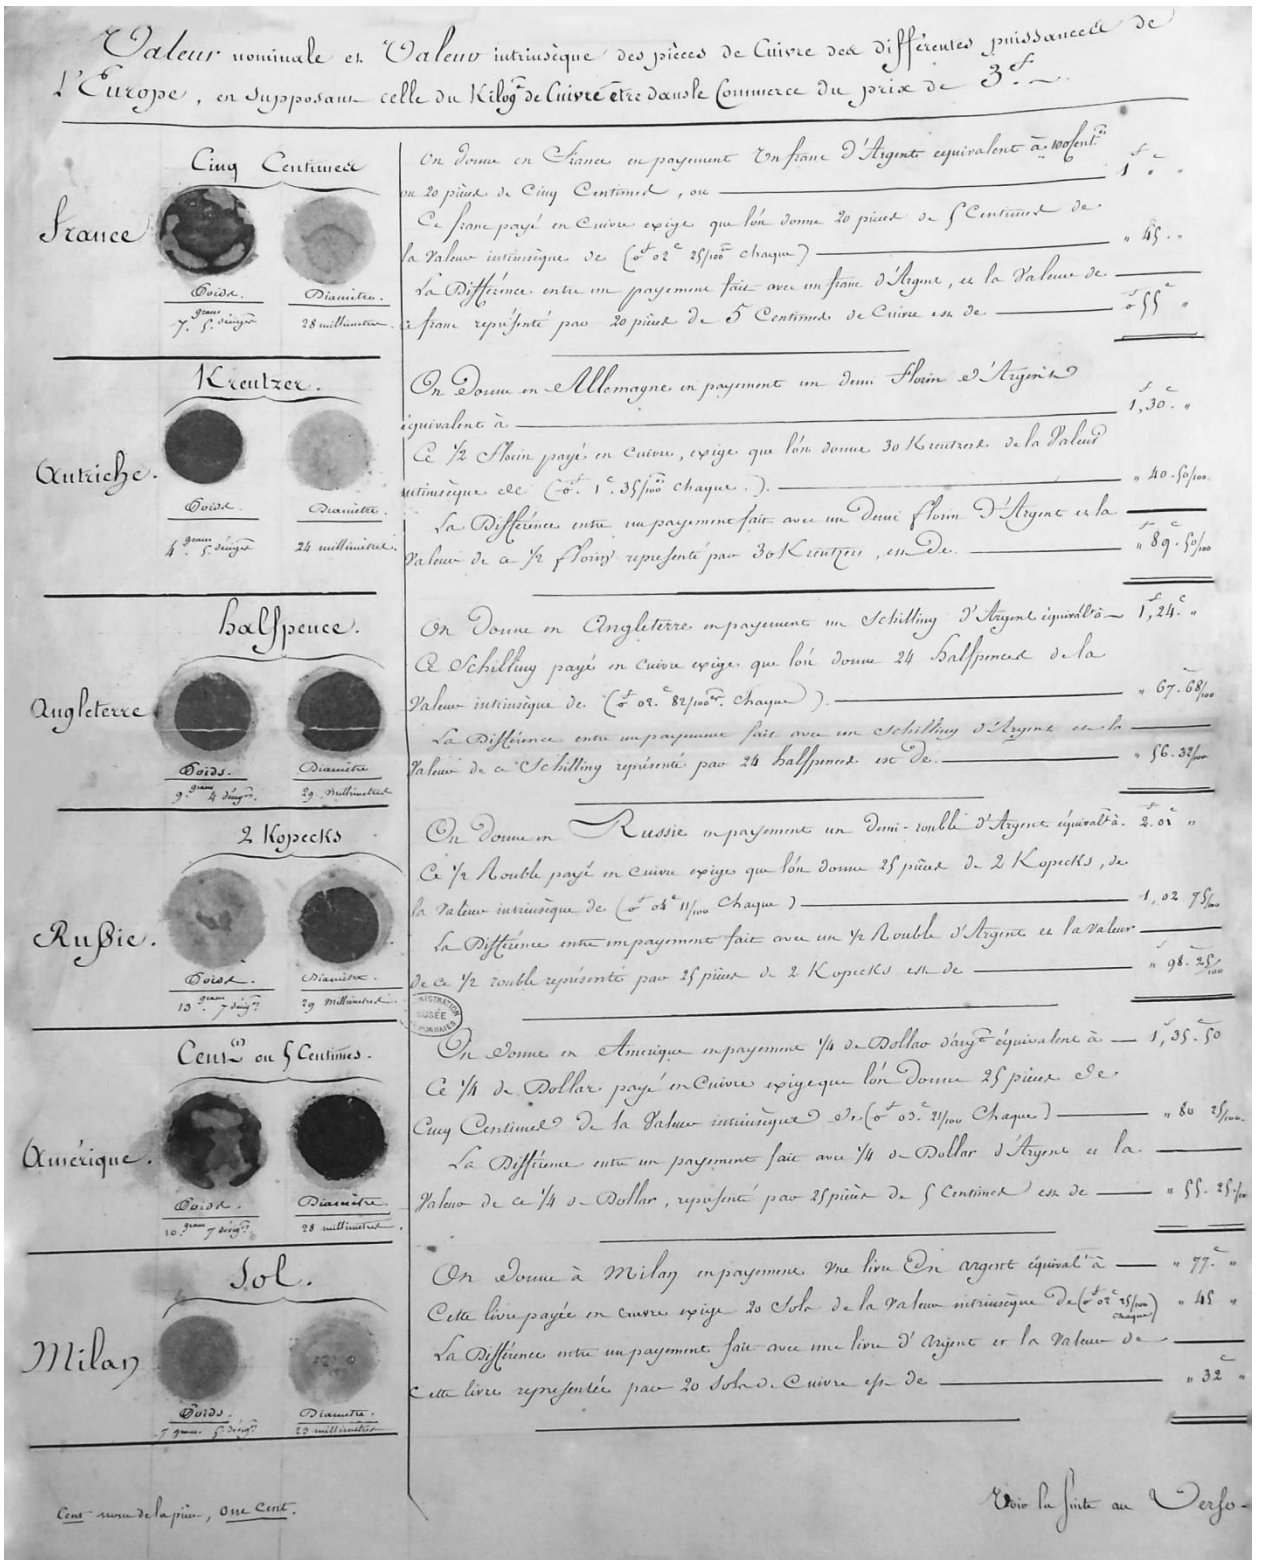 Valeur nominale et Valeur intrinsèque des pièces de Cuivre des différentes puissances de
L'Europe, en supposant celle du Kilog.e de Cuivre être dans le Commerce du prix de 3.f
Cinq Centimes
France
Poids.
Diamètre.
7. gram 5. décigr
28 millimètres.
On donne en France en payement Un franc d'Argent équivalent à 100 Cent.es
ou 20 pièces de Cinq Centimes, ou 1 f " c "
Ce franc payé en Cuivre exige que l'on donne 20 pièces de 5 Centimes de
la Valeur intrinsèque de (0 f 02 c 25/100 es chaque) " 45 . "
La Différence entre un payement fait avec un franc d'Argent, et la Valeur de
ce franc représenté par 20 pièces de 5 Centimes de Cuivre est de 0 f 55 c "
Kreutzer.
Autriche.
Poids.
Diamètre
4. gram 5. décigr
24 millimètres.
On Donne en Allemagne en payement un demi Florin d'Argent
équivalent à 1 f, 30 c . "
Ce 1/2 Florin payé en cuivre, exige que l'on donne 30 Kreutzers de la Valeur
intrinsèque de (0 f. 1 c. 35/100 es chaque.). " 40 . 50/100.
La Différence entre un payement fait avec un Demi florin D'Argent et la
Valeur de ce 1/2 florin représenté par 30 Kreutzers, est de. " 89 . 50/100
halfpence.
Angleterre
Poids.
Diamètre
9. gram 4 décigr.
29. Millimètres
On Donne en Angleterre en payement un Schilling d'Argent équival.t à 1 f, 24 c. "
Ce Schilling payé en cuivre exige que l'on donne 24 halfpences de la
Valeur intrinsèque de (0 f 02. c 82/100 es. chaque). " 67 . 68/100
La Différence entre un payement fait avec un schilling d'Argent et la
Valeur de ce Schilling représenté par 24 halfpences est de. " 56 . 32/100
2 Kopecks
Russie.
Poids.
Diamètre.
13. gram 7 décigr
29 Millimètres.
On Donne en Russie en payement un demi-rouble d'Argent équival.t à. 2 f. 01 c "
Ce 1/2 Rouble payé en cuivre exige que l'on donne 25 pièces de 2 Kopecks, de
la Valeur intrinsèque de (0 f 04 c 11/100 Chaque) 1, 02 75/100
La Différence entre un payement fait avec un 1/2 Rouble d'Argent et la Valeur
de ce 1/2 rouble représenté par 25 pièces de 2 Kopecks est de " 98 . 25/100
MUSÉE
Cent (1) ou 5 Centimes.
Amérique.
Poids.
Diamètre.
10. gram 7 décigr
28 millimètres.
On donne en Amérique en payement 1/4 de Dollar d'arg.t équivalent à 1 f, 35 c. 50
Ce 1/4 de Dollar payé en Cuivre exige que l'on Donne 25 pièces de
Cinq Centimes de la Valeur intrinsèque de (0 f 03. c 21/100 Chaque) " 80 25/100.
La Différence entre un payement fait avec 1/4 de Dollar d'Argent et la
Valeur de ce 1/4 de Dollar, représenté par 25 pièces de 5 Centimes est de " 55 . 25/100
Sol.
Milan
Poids.
Diamètre.
7 gram 5. décigr
23 millimètres
On donne à Milan en payement une livre En argent équival.t à " 77. c "
Cette livre payée en cuivre exige 20 Sols de la Valeur intrinsèque De (0 f 02 c 25/100 chaque) " 45 "
La Différence entre un payement fait avec une livre d'Argent et la Valeur de
Cette livre représentée par 20 Sols de Cuivre est de " 32 c "
Cent nom de la pièce, one Cent.
Voir la suite au Verso